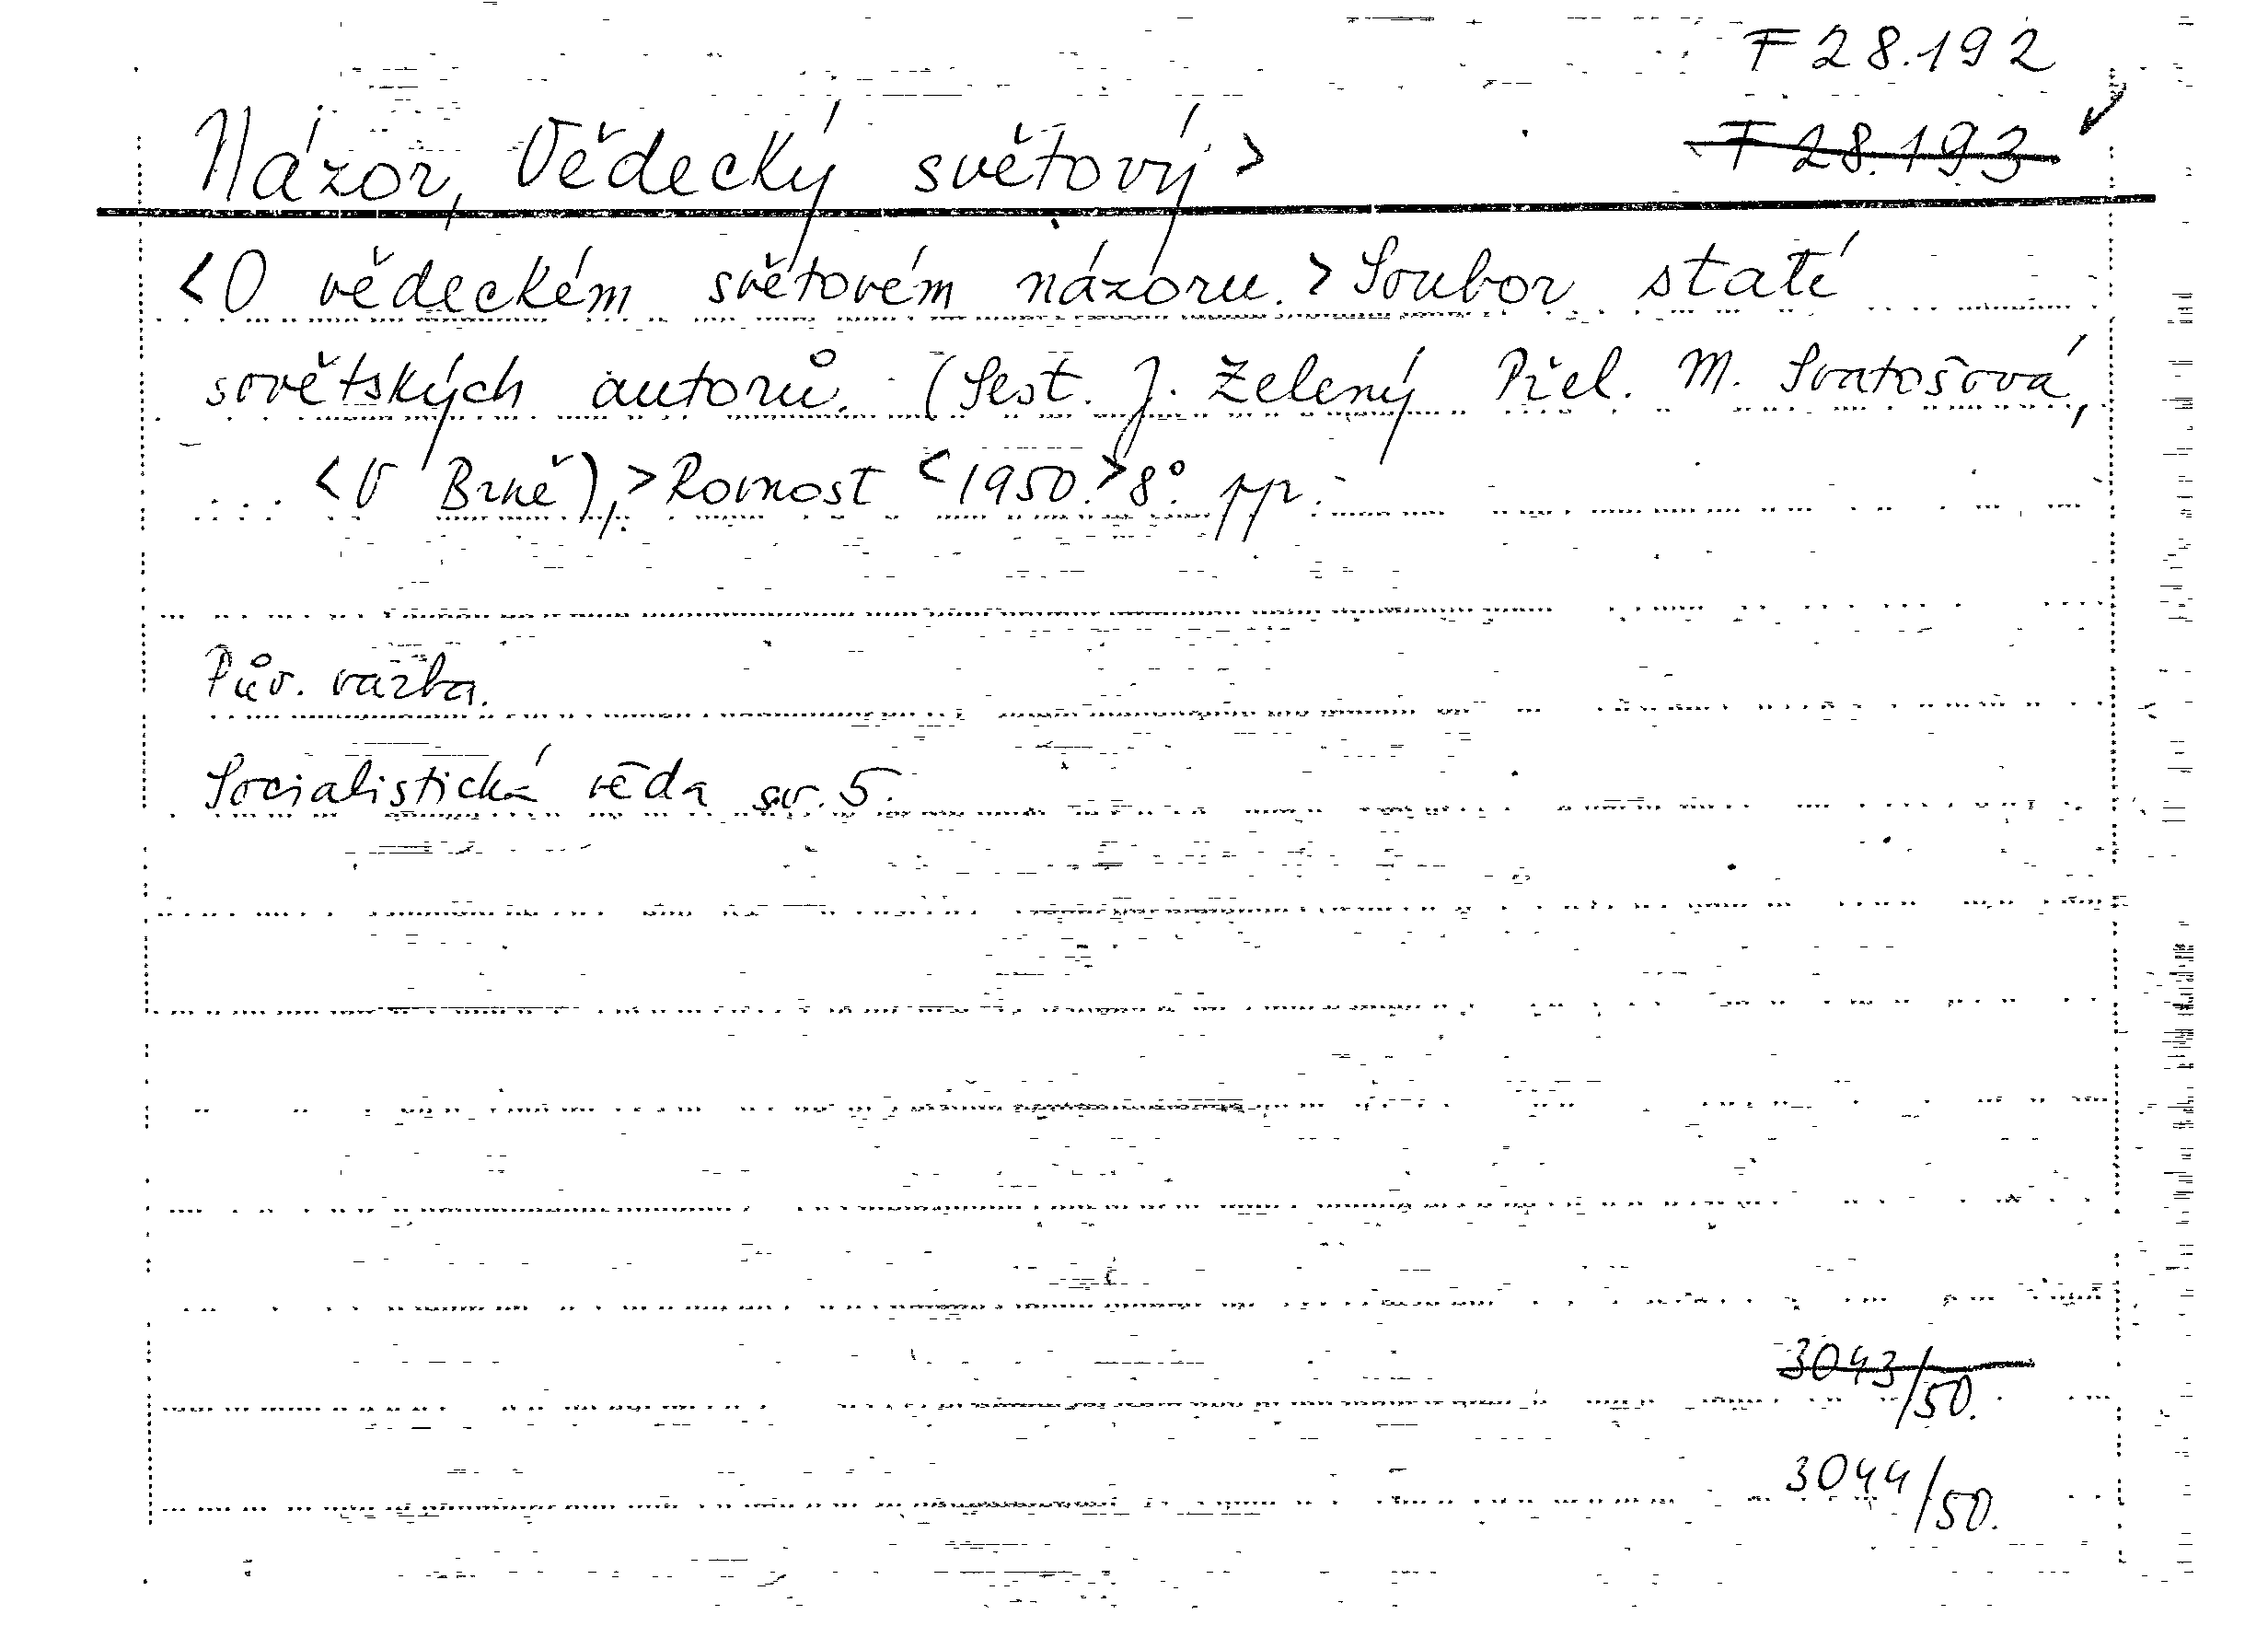 F 28.192
Názor, Vědecký světový >
F 28.193
<O vědeckém světovém názoru.> Soubor statí
sovětských autorů. (Sest. J. Zelený Přel. M. Svatošová,
... <V Brně),> Rovnost <1950.> 8°. pp.
Pův. vazba.
Socialistická věda sv. 5.
3043/50.
3044/50.